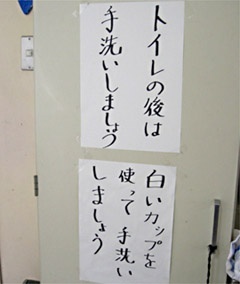 トイレの後は
手洗いしましょう
白いカップを
使って手洗い
しましょう